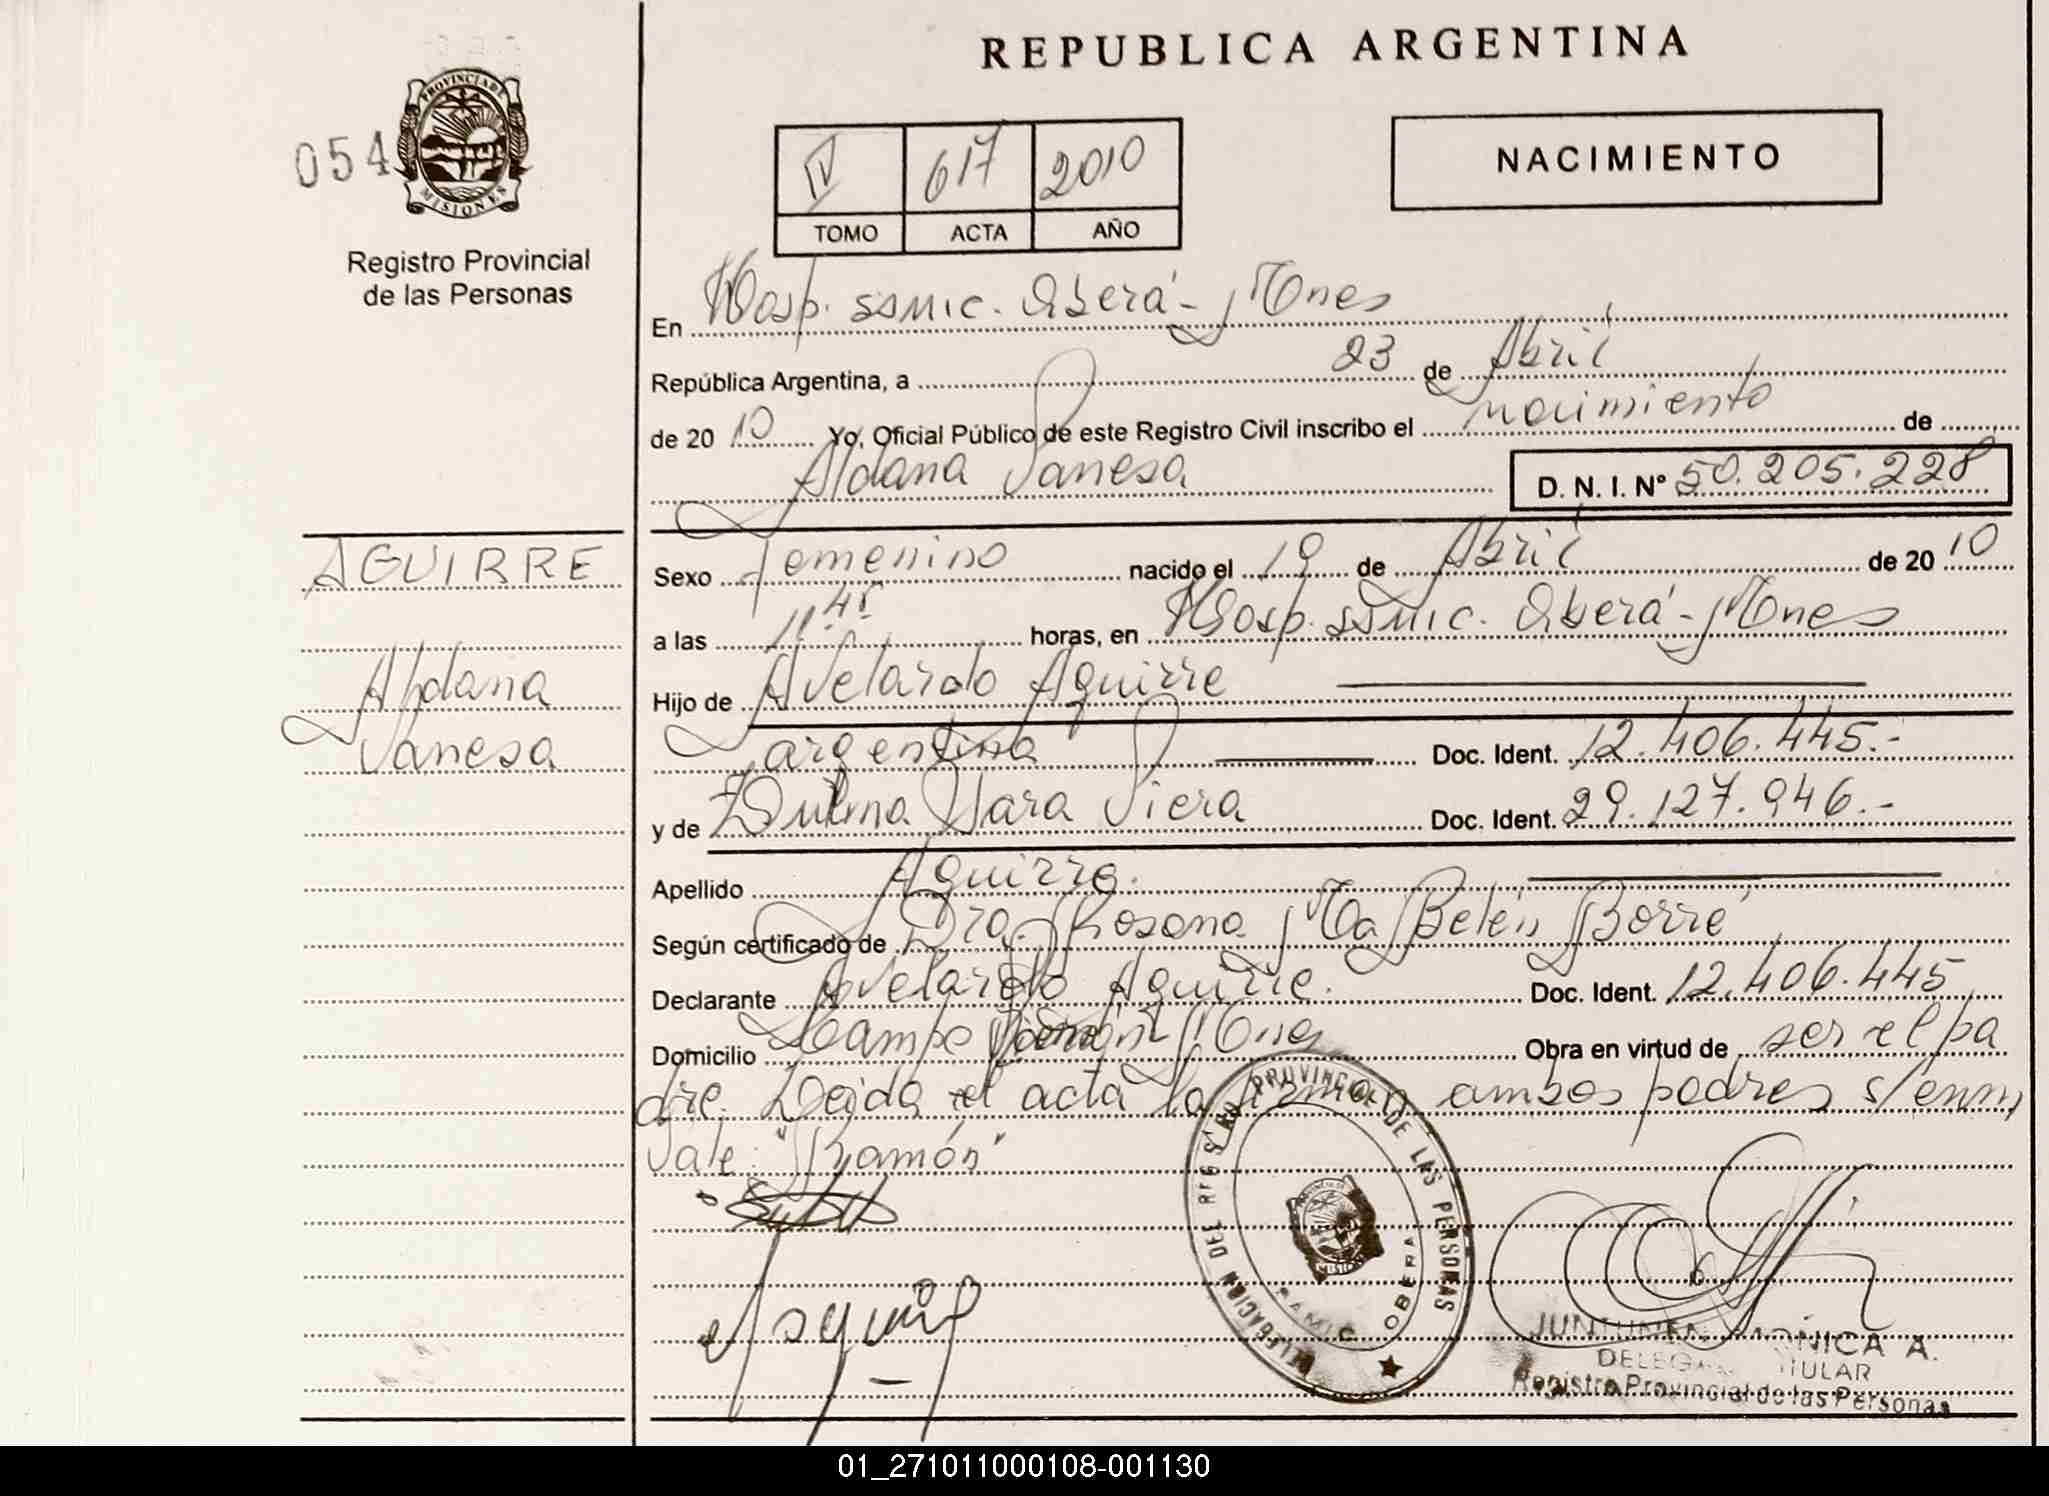 REPUBLICA ARGENTINA
054
PROVINCIA DE
MISIONES
Registro Provincial
de las Personas
IV 617 2010
TOMO ACTA AÑO
NACIMIENTO
En Hosp. SSMIC. Oberá - Mnes
República Argentina, a 23 de Abril
de 20 10 Yo, Oficial Público de este Registro Civil inscribo el nacimiento de
Aldana Vanesa D. N. I. Nº 50.205.228
AGUIRRE
Aldana
Vanesa
Sexo femenino nacido el 19 de Abril de 20 10
a las 11.45 horas, en Hosp. SSMIC. Oberá - Mnes
Hijo de Avelardo Aguirre
argentina Doc. Ident. 12.406.445.-
y de Zulma Sara Viera Doc. Ident. 29.127.946.-
Apellido Aguirre.
Según certificado de Dra. Rosana Ma Belén Borré
Declarante Avelardo Aguirre. Doc. Ident. 12.406.445
Domicilio Campo Ramón Mnes Obra en virtud de ser el pa
dre. Leida el acta la firman ambos padres s/enm,
Vale: "Ramón"
DELEGACION DEL REGISTRO PROVINCIAL DE LAS PERSONAS
SAMIC OBERA
MÓNICA A.
DELEGADA TITULAR
Registro Provincial de las Personas
01_271011000108-001130